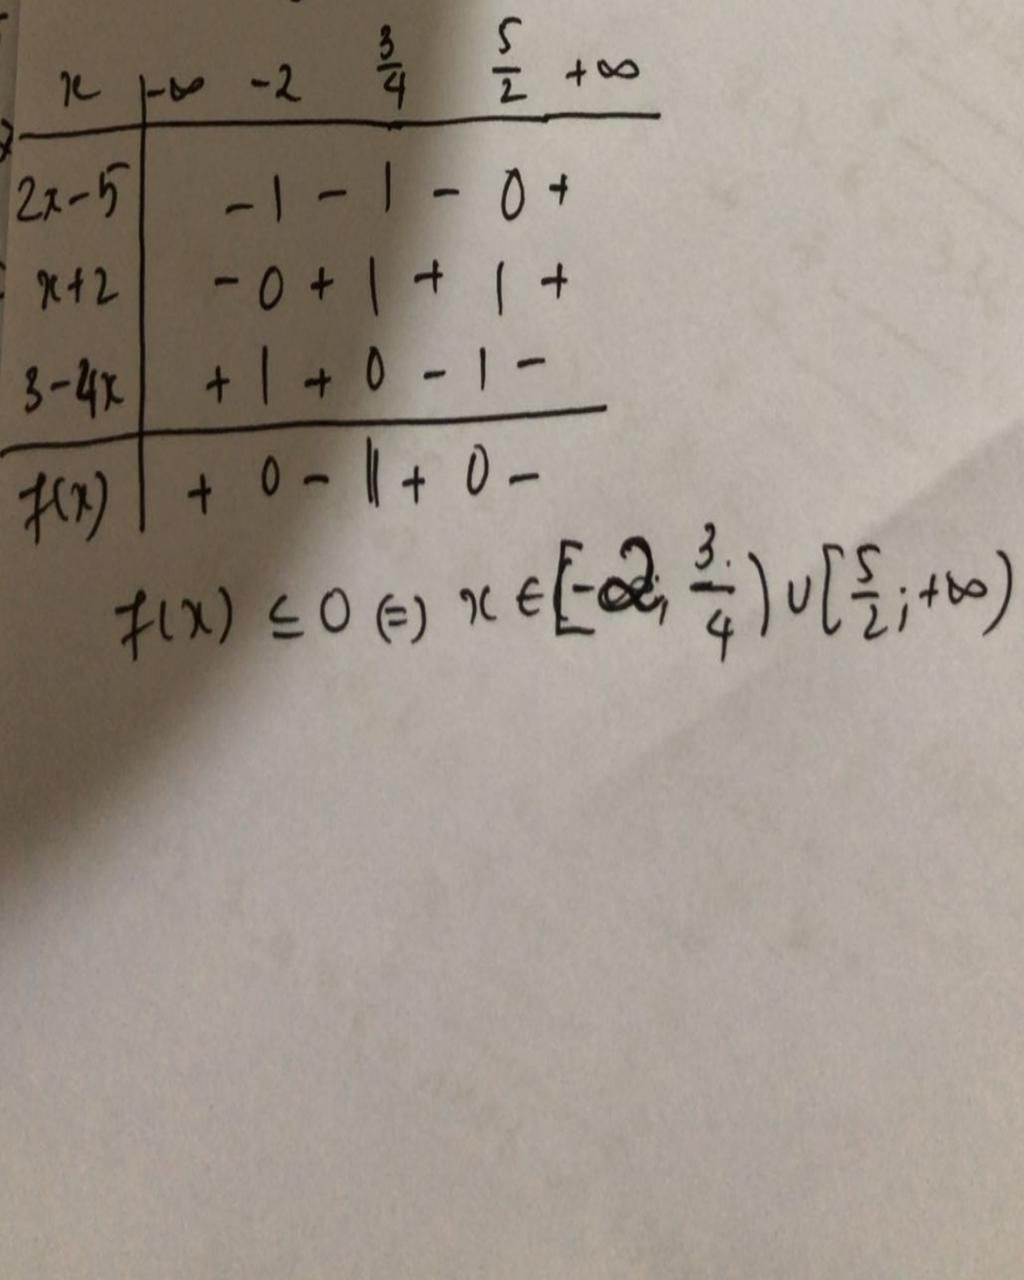 x | -∞ -2 3/4 5/2 +∞
2x-5 | - | - | - 0 +
x+2 | - 0 + | + | +
3-4x | + | + 0 - | -
f(x) | + 0 - || + 0 -
f(x) ≤ 0 (=) x ∈ [-2; 3/4) ∪ [5/2; +∞)